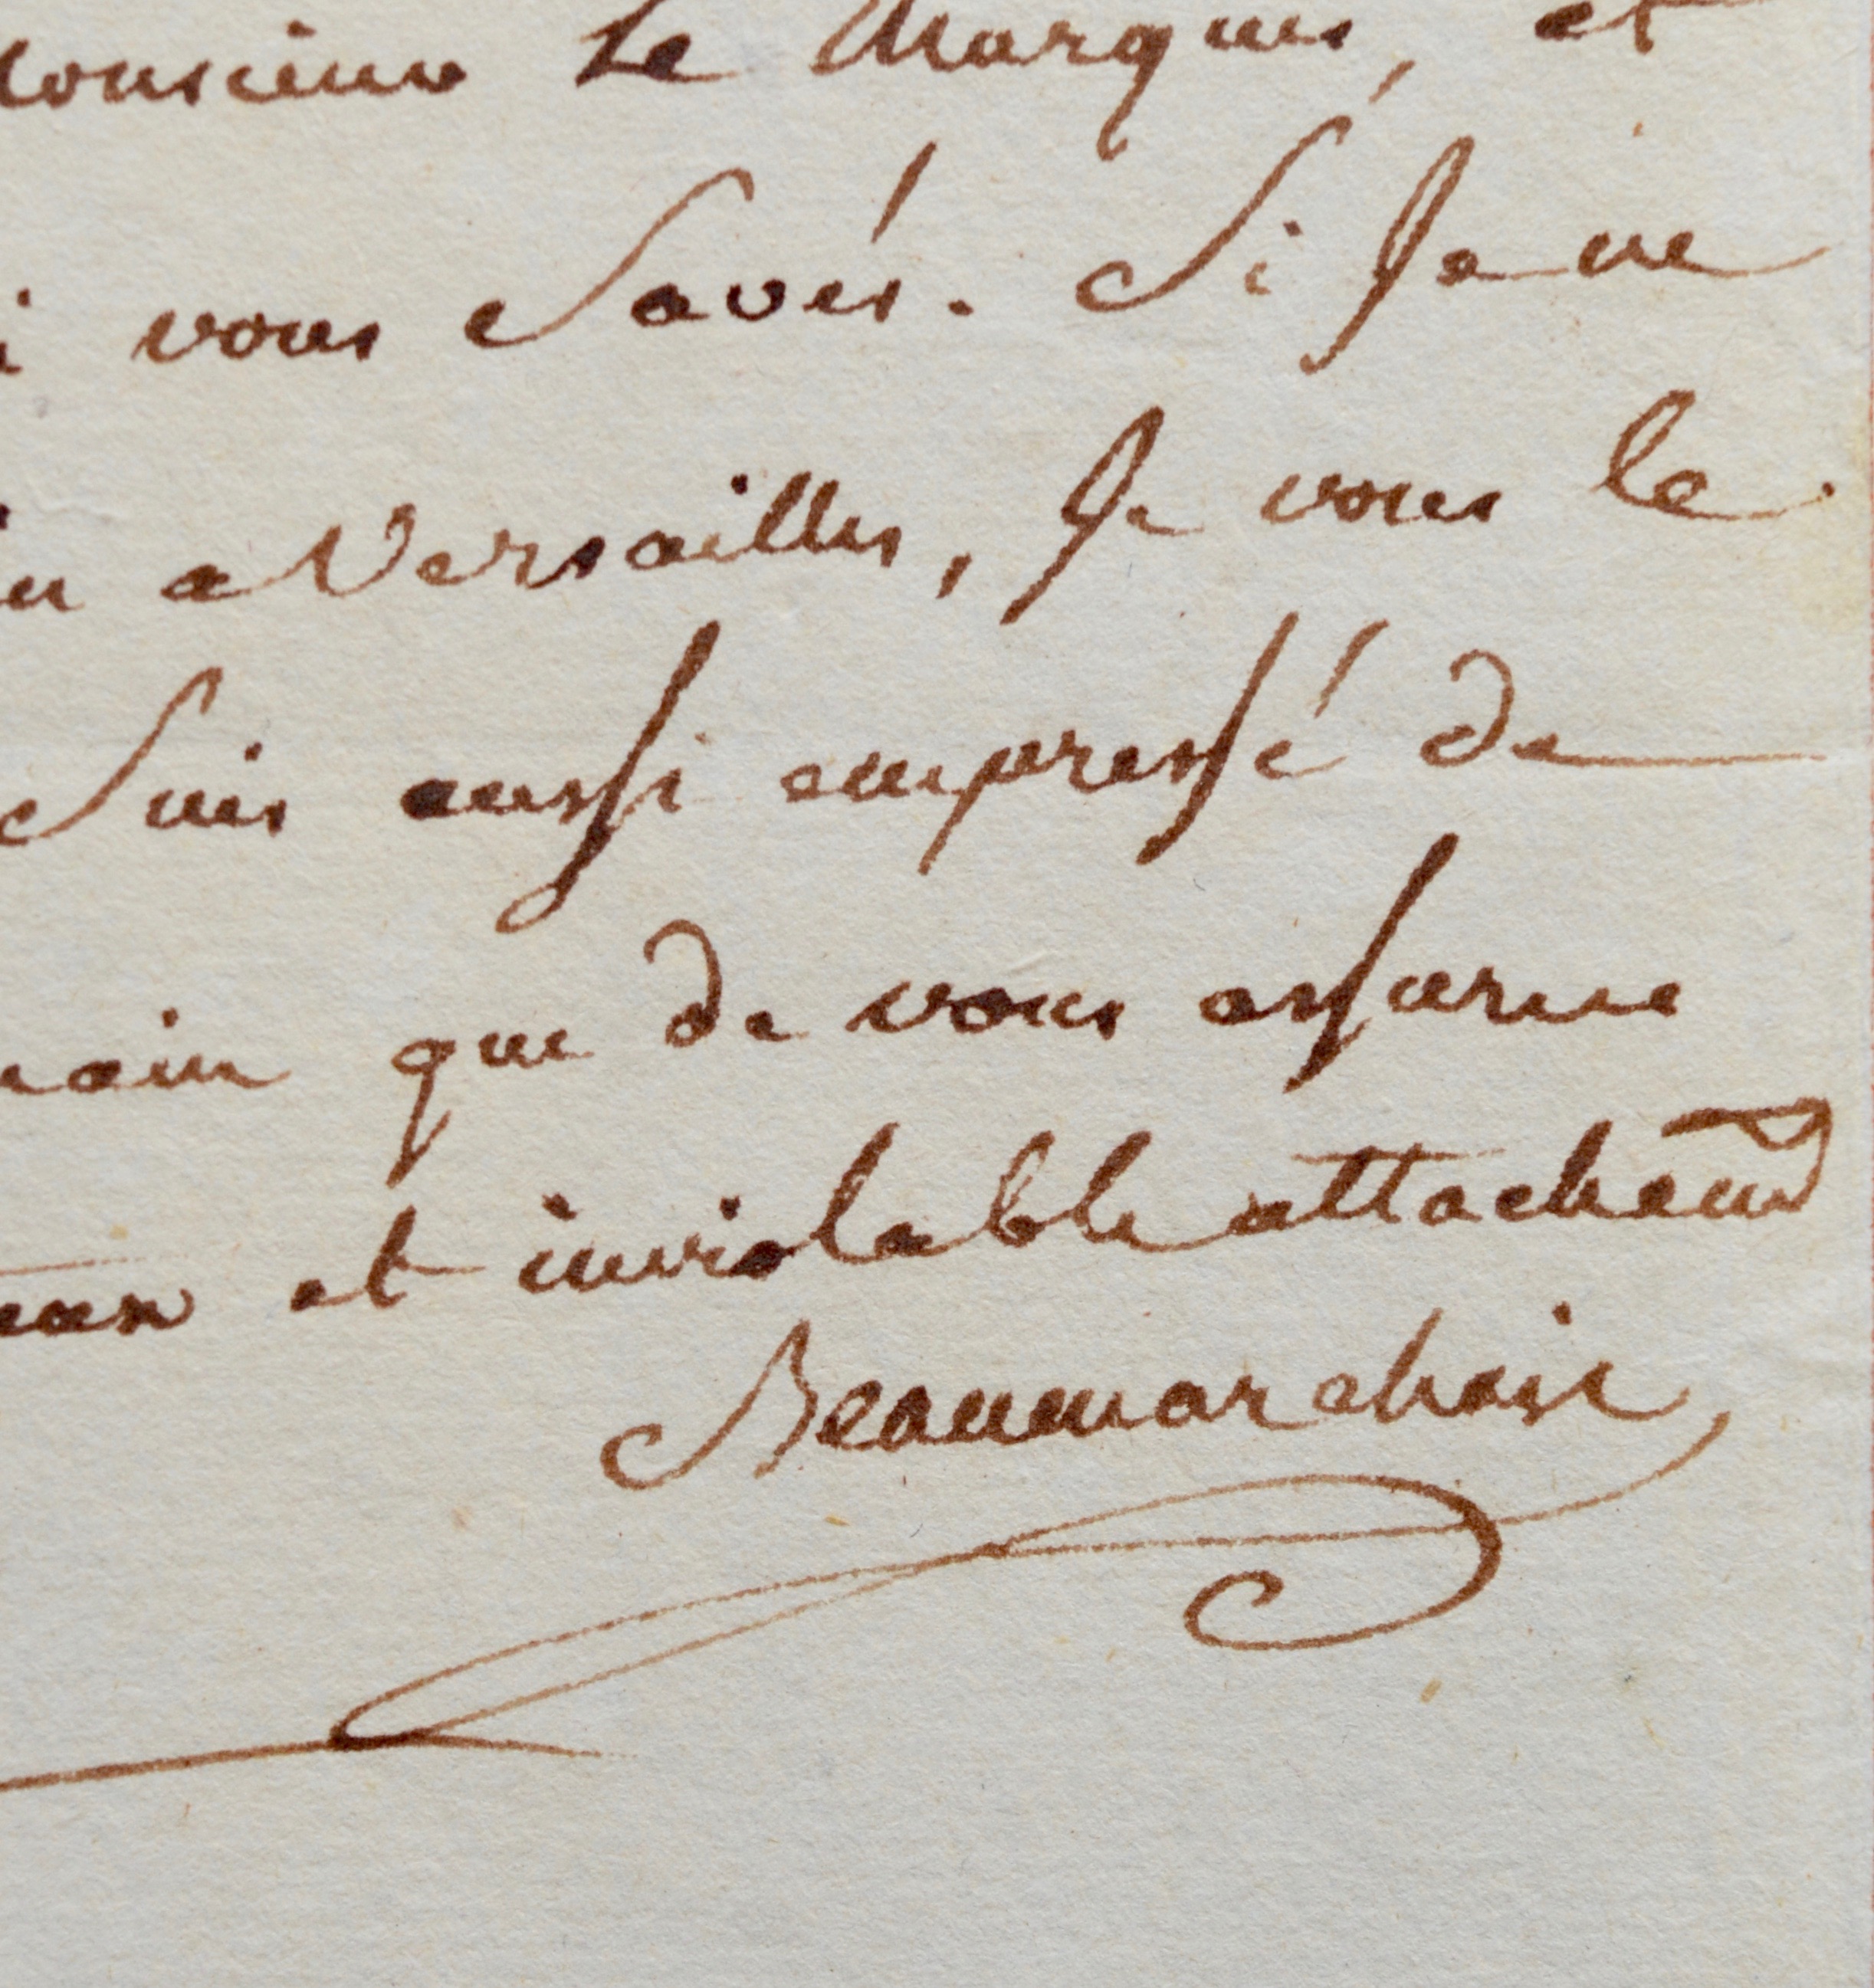 Monsieur Le Marquis, et
i vous Savés. Si Je ne
a Versailles, Je vous le
Suis aussi empressé de
que de vous assurer
et inviolable attachem
Beaumarchais